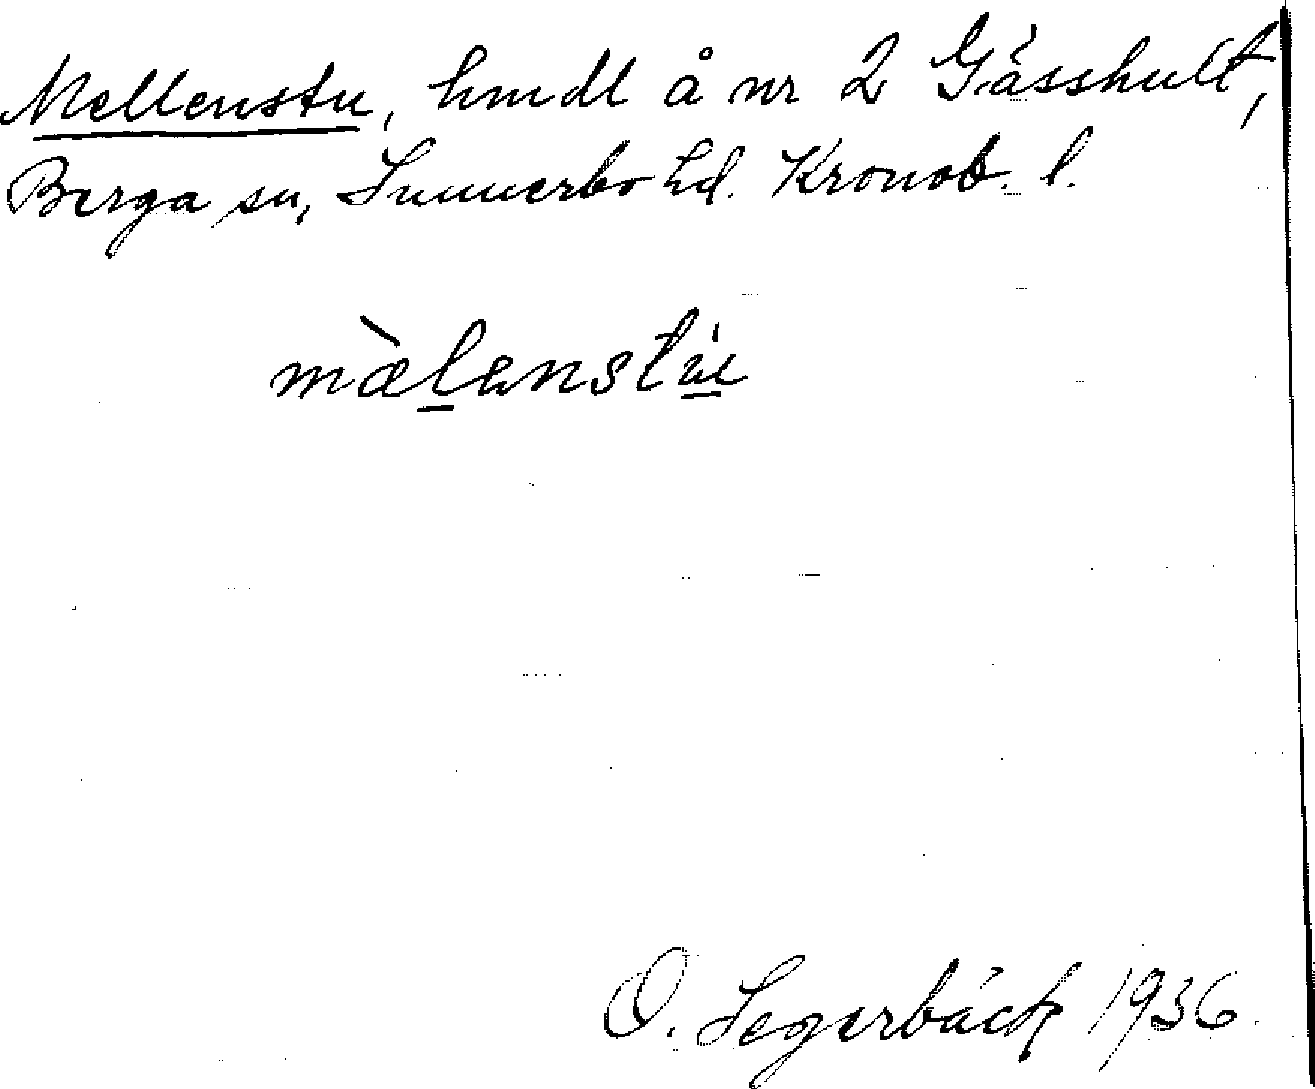 Mellenstu, hmdl å nr 2 Gässhult,
Berga sn, Sunnerbo hd. Kronob. l.
mæ̀lenstu̇e
O. Segerbäck 1936